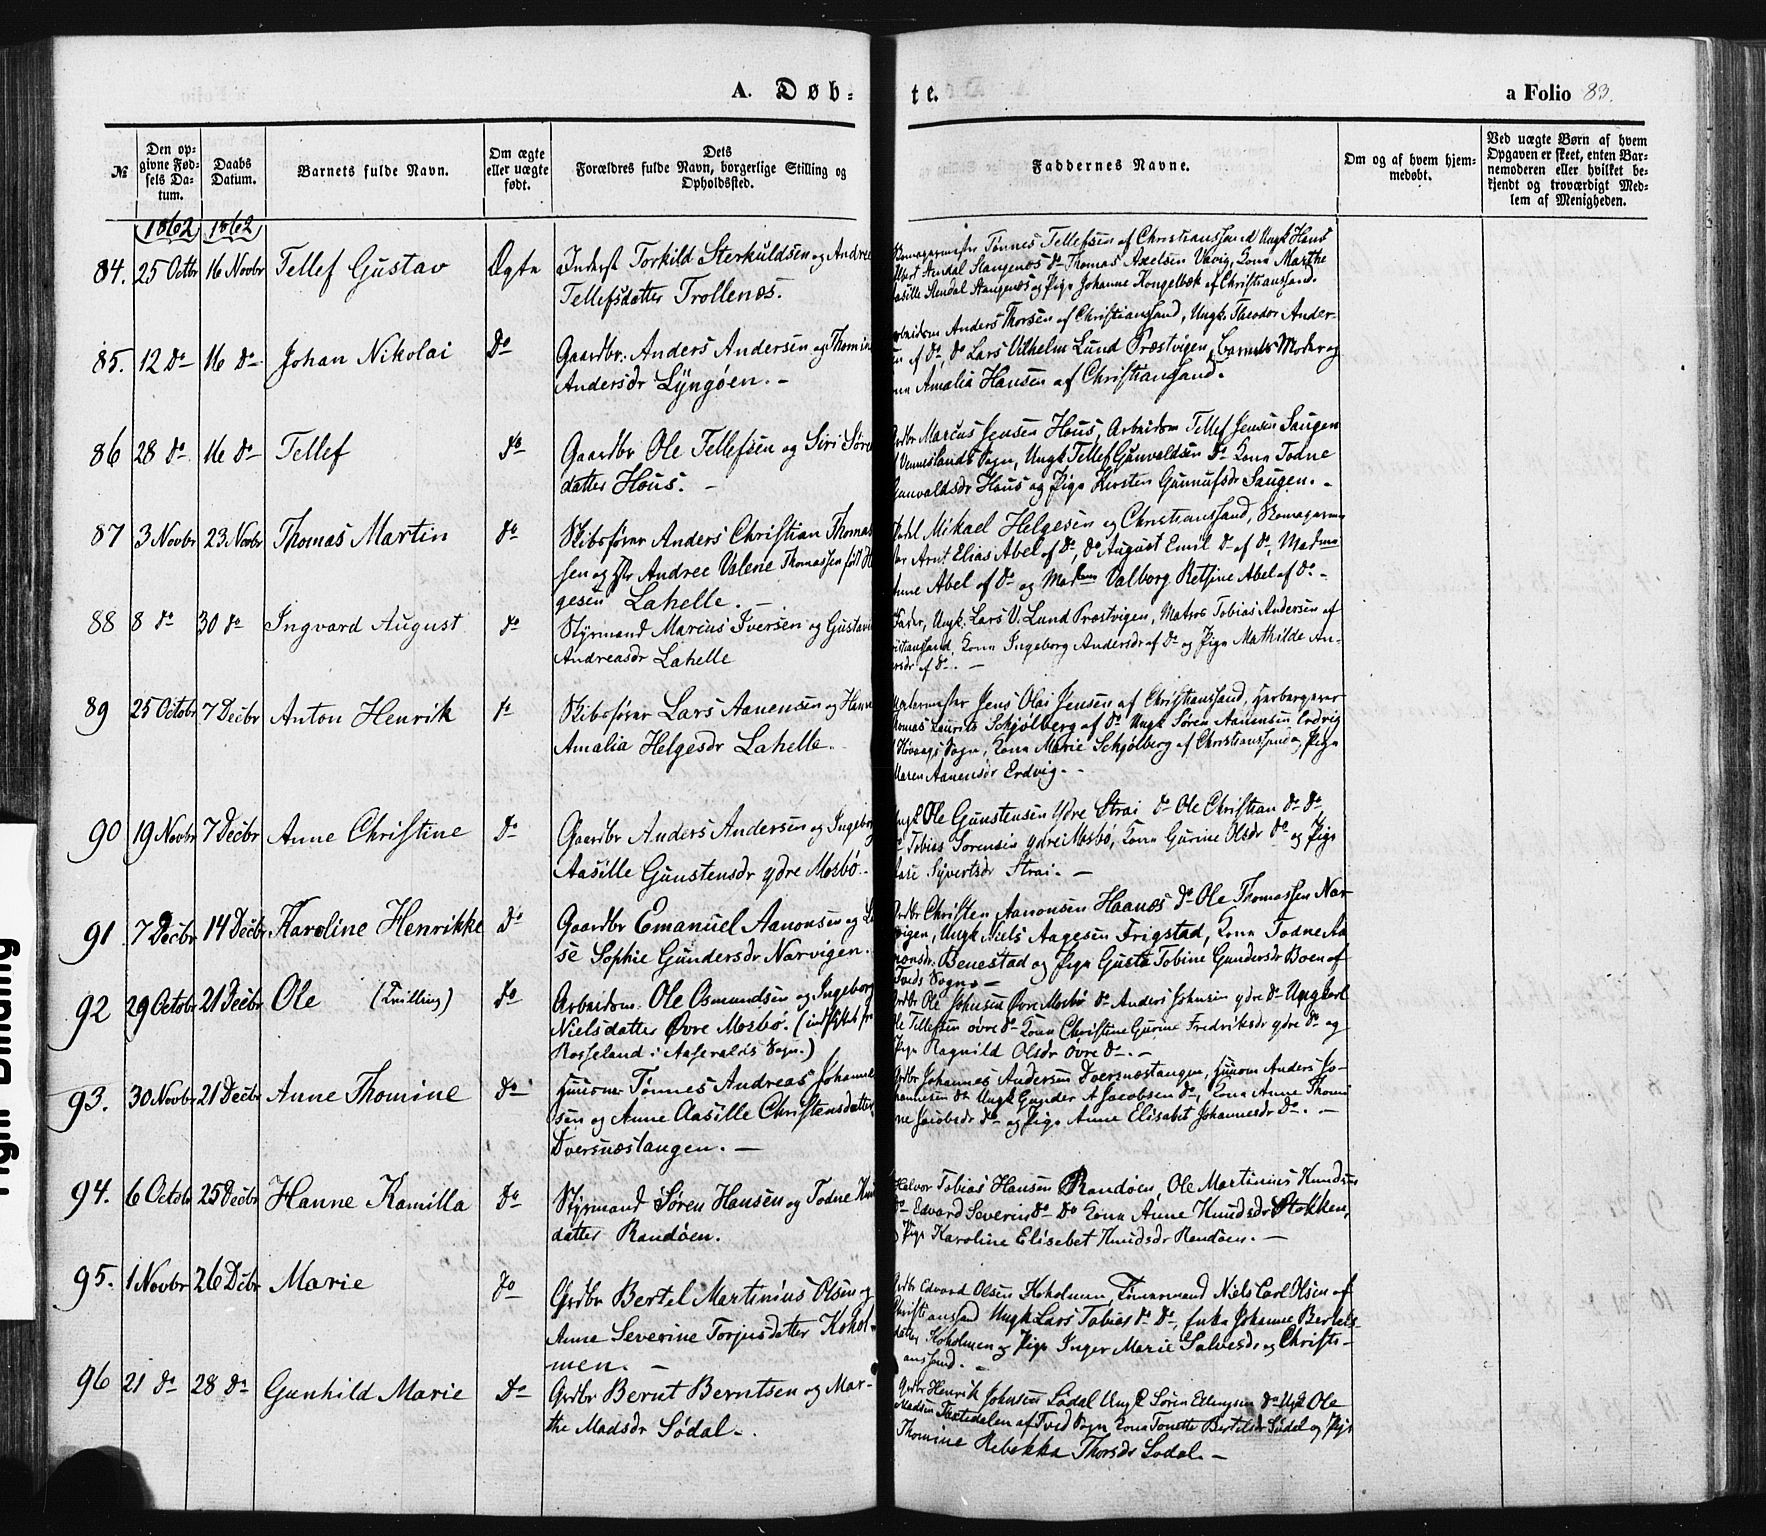 A. Døb-
te.
a Folio 83.
№
Den op-
givne Fød-
sels Da-
tum.
Daabs
Datum.
Barnets fulde Navn.
Om ægte
eller uægte
født.
Dets
Forældres fulde Navn, borgerlige Stilling og
Opholdssted.
Faddernes Navne.
Om og af hvem hjem-
medøbt.
Ved uægte Børn af hvem
Opgaven er skeet, enten Bar-
nemoderen eller hvilket be-
kjendt og troværdigt Med-
lem af Menigheden.
1862 1862
84. 25 Octbr 16 Novbr Tellef Gustav Ægte Inderst Torkild Sterkuldsen og Andrea
Tellefsdatter Trollenæs.
Tønnes Tellefsen af Christiansand Ungk Hans
Albert Stangenæs Do Thomas Axelsen Vavig, Kona Marthe
Aasille Stendal Stangenæs og Pige Johanne Kongelbæk af Christiansand.
85. 12 Do 16 Do Johan Nikolai Do Gaardbr. Anders Andersen og Thomin
Andersdr Lyngøen. -
Arbeidsm Anders Thorsen af Christiansand, Ungk. Theodor Ander-
sen af Do, Do Lars Vilhelm Lund Præstvigen, barnets Moder og
Amalia Hansen af Christiansand.
86 28 Do 16 Do Tellef Do Gaardbr Ole Tellefsen og Siri Søre
datter Hous. -
Grdbr Marcus Jensen Hous, Arbeidsm Tellef Jensen Saugen
Venneslands Sogn, Ungk Tellef Gunvaldsen Do Kona Todne
Gunvaldsdr Hous og Pige Kersten Gunnufsdr Saugen. -
87 3 Novbr 23 Novbr Thomas Martin Do Skibsfører Anders Christian Thomas
sen og Andree Valene Thomassen født H
gesen Lahelle. -
Mikael Helgesen Christiansand,
Arnt Elias Abel af Do, Do August Emil Do af Do, Madme
Abel af Do og Madme Valborg Retsine Abel af Do -
88 8 Do 30 Do Ingvard August Do Styrmand Marcus Iversen og Gustavi
Andreasdr Lahelle
Fader, Ungk. Lars V. Lund Præstvigen, Matros Tobias Andersen af
Kona Ingeborg Andersdr af Do og Pige Mathilde An-
af Do. -
89 25 Octobr 7 Decbr Anton Henrik Do Skibsfører Lars Aanensen og Hanne
Amalia Helgesdr Lahelle.
Jens Olai Jensen af Christiansand,
Laurits Schjølberg af Do Ungk Søren Aanensen Erdvig
Høvaags Sogn, Kona Marie Schjølberg af Christiansand og Pige
Maren Aanensdr Erdvig. -
90 19 Novbr 7 Decbr Anne Christine Do Gaardbr Anders Andersen og Ingebor
Aasille Gunstensdr ydre Mosbø. -
Ungk Ole Gunstensen Ydre Strai Do Ole Christian Do Do
Tobias Sorensen ydre Mosbø, Kona Gurine Olsdr Do og Pige
Aase Syvertsdr Strai. -
91 7 Decbr 14 Decbr Karoline Henrikke Do Gaardbr Emanuel Aanonsen og L
se Sophie Gundersdr Narvigen.
Grdbr Christen Aanonsen Haanes Do Ole Thomassen Nar-
vigen, Ungk Niels Aagesen Frigstad, Kona Todne Aa
nonsdr Benestad og Pige Gusta Tobine Gundersdr Boen af
Tveds Sogn. -
92 29 Octobr 21 Decbr Ole (Tvilling) Do Arbeidsm. Ole Osmundsen og Ingeborg
Nielsdatter Øvre Mosbø. (indflyttet fra
Rosseland i Aaseralds Sogn.)
Grdbr Ole Johnsen Øvre Mosbø Do Anders Johnsen ydre Do Ungkarl
Ole Tellefsen øvre Do Kona Christine Gurine Fredriksdr ydre Do og
Pige Ragnild Olsdr Øvre Do. -
93. 30 Novbr 21 Decbr Anne Thomine Do Tønnes Andreas Johanne
sen og Anne Aasille Christensdatter
Dversnæstangen. -
Grdbr Johannes Andersen Dversnæstangen, Anders Jo-
hannesen Do Ungk Gunder A Jacobsen Do, Kona Anne Thomi
ne Jacobsdr Do og Pige Anne Elisabet Johannesdr Do. -
94. 6 Octobr 25 Decbr Hanne Kamilla Do Styrmand Søren Hansen og Todne Knu
datter Randøen.
Halvor Tobias Hansen Randøen, Ole Martinius Knudsen
Do Edvard Severin Do Do Kona Anne Knudsdr Stokken,
Pige Karoline Elisebet Knudsdr Randøen. -
95. 1 Novbr 26 Dcbr Marie Do Grdbr Bertel Martinius Olsen og
Anne Severine Torjusdatter Kohol-
men. -
Grdbr Edvard Olsen Koholmen, Tømermand Niels Carl Olsen af
Christiansand Ungk Lars Tobias Do Do, Enke Johanne Bertels-
datter Koholmen og Pige Inger Marie Salvesdr og Christi-
ansand. -
96 21 Do 28 Do Gunhild Marie Do Grdbr Bernt Berntsen og Mar-
the Madsdr Sødal -
Grdbr Henrik Johnsen Sødal Ungk Søren Ellingsen Do Ungk Ole
Madsen af Tved Sogn Kona Tonette Bertelsdr Sødal og Pige
Thomine Rebekka Thorsdr Sodal. -